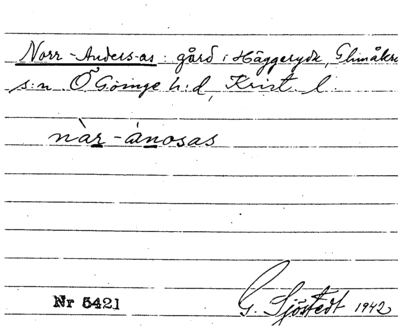 Norr-Anders-as: gård i Häggeryda, Glimåkra
s:n Ö Göinge h:d, Krist. l.
nàr-ánosas
Nr 5421
G. Sjöstedt 1942